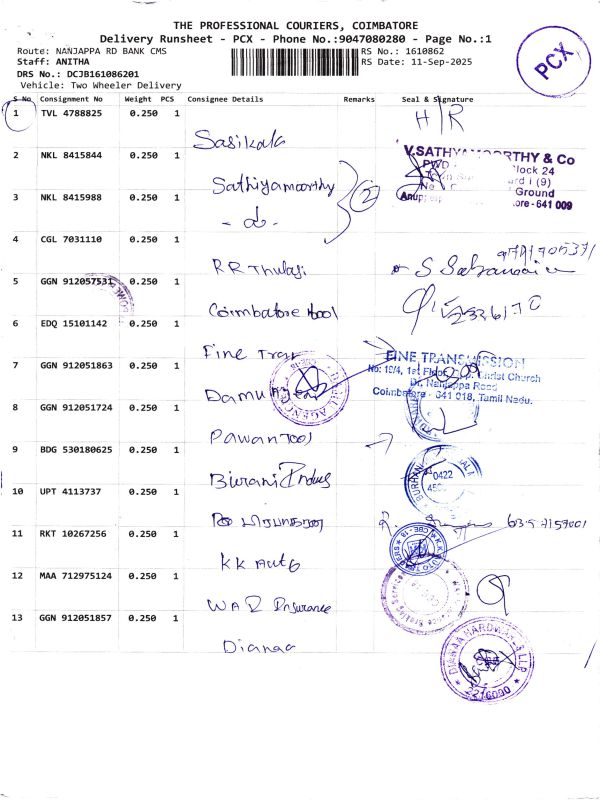 THE PROFESSIONAL COURIERS, COIMBATORE
Delivery Runsheet - PCX - Phone No.:9047080280 - Page No.:1
Route: NANJAPPA RD BANK CMS
RS No.: 1610862
Staff: ANITHA
RS Date: 11-Sep-2025
DRS No.: DCJB161086201
Vehicle: Two Wheeler Delivery
PCX
S No Consignment No Weight PCS Consignee Details Remarks Seal & Signature
1 TVL 4788825 0.250 1 H/R
Sasikala
2 NKL 8415844 0.250 1
V.SATHYAMOORTHY & Co
PWD
Block 24
Sathiyamoorthy
(9)
Ground
3 NKL 8415988 0.250 1 2
641 009
- do -
4 CGL 7031110 0.250 1
RR Thulasi
5 GGN 912057531 0.250 1
Coimbatore tool
6 EDQ 15101142 0.250 1
Fine Tran
FINE TRANSMISSION
7 GGN 912051863 0.250 1
No: 19/4, 1st Floor, Christ Church
Dr. Nanjappa Road
Coimbatore - 641 018, Tamil Nadu.
Damu
8 GGN 912051724 0.250 1
Pawan Tool
9 BDG 530180625 0.250 1
0422
Burani Indus
10 UPT 4113737 0.250 1
11 RKT 10267256 0.250 1
KK Auto
12 MAA 712975124 0.250 1
W A R Insurance
13 GGN 912051857 0.250 1
DIANAA HARDWARES LLP
2216090
Dianaa